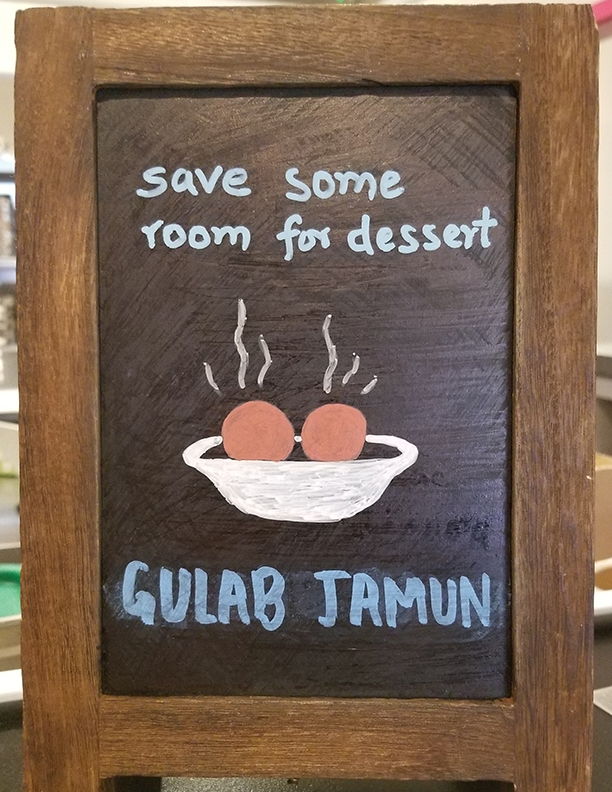 save some
room for dessert
GULAB JAMUN